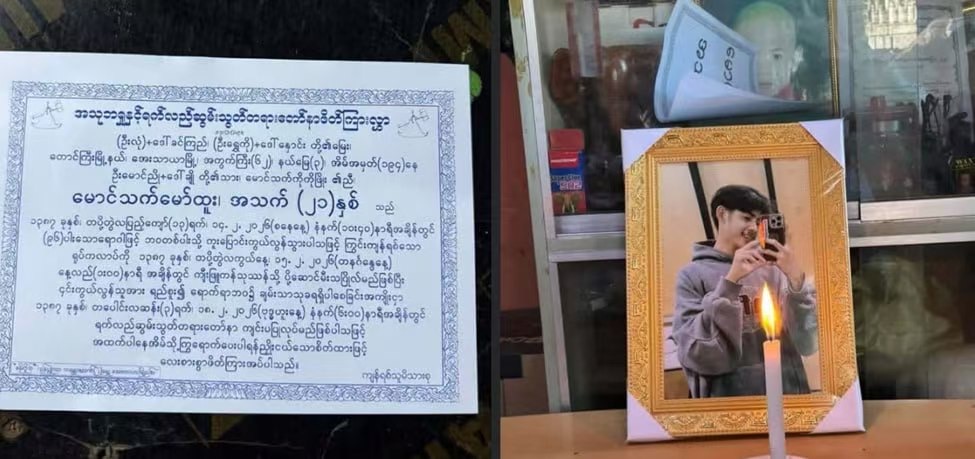 အသုဘရှုနှင့်ရက်လည်ဆွမ်းသွတ်တရားတော်နာဖိတ်ကြားလွှာ
(ဦးလုံ)+ဒေါ်ခင်ကြည်၊ (ဦးရွှေကို)+ဒေါ်နှောင်း တို့၏မြေး၊
တောင်ကြီးမြို့နယ်၊ အေးသာယာမြို့၊ အကွက်ကြီး(၆၂) နယ်မြေ(၃) အိမ်အမှတ်(၁၉၄)နေ
ဦးမောင်ညို+ဒေါ်ချို တို့၏သား၊ မောင်သက်ကိုကိုဖြိုး ၏ညီ
မောင်သက်မော်ထူး၊ အသက် (၂၁)နှစ် သည်
၁၃၈၇ ခုနှစ်၊ တပို့တွဲလပြည့်ကျော်(၁၃)ရက်၊ ၁၄.၂.၂၀၂၆(စနေနေ့) နံနက်(၁၁း၄၀)နာရီအချိန်တွင်
(၉၆)ပါးသောရောဂါဖြင့် ဘဝတစ်ပါးသို့ ကူးပြောင်းကွယ်လွန်သွားပါသဖြင့် ကြွင်းကျန်ရစ်သော
ရုပ်ကလာပ်ကို ၁၃၈၇ ခုနှစ်၊ တပို့တွဲလကွယ်နေ့ ၁၅.၂.၂၀၂၆ (တနင်္ဂနွေနေ့)
နေ့လည်(၁း၀၀)နာရီ အချိန်တွင် ကျီးဖြူကန်သုသာန်သို့ ပို့ဆောင်မီးသင်္ဂြိုလ်မည်ဖြစ်ပြီး
၎င်းကွယ်လွန်သူအား ရည်စူး၍ ရောက်ရာဘဝ၌ ချမ်းသာသုခရရှိပါစေခြင်းအကျိုးငှာ
၁၃၈၇ ခုနှစ်၊ တပေါင်းလဆန်း(၃)ရက်၊ ၁၈.၂.၂၀၂၆(ဗုဒ္ဓဟူးနေ့) နံနက်(၆း၀၀)နာရီအချိန်တွင်
ရက်လည်ဆွမ်းသွတ်တရားတော်နာ ကျင်းပပြုလုပ်မည်ဖြစ်ပါသဖြင့်
အထက်ပါနေအိမ်သို့ကြွရောက်ပေးပါရန်ညှိုးငယ်သောစိတ်ထားဖြင့်
လေးစားစွာဖိတ်ကြားအပ်ပါသည်။
ကျန်ရစ်သူမိသားစု